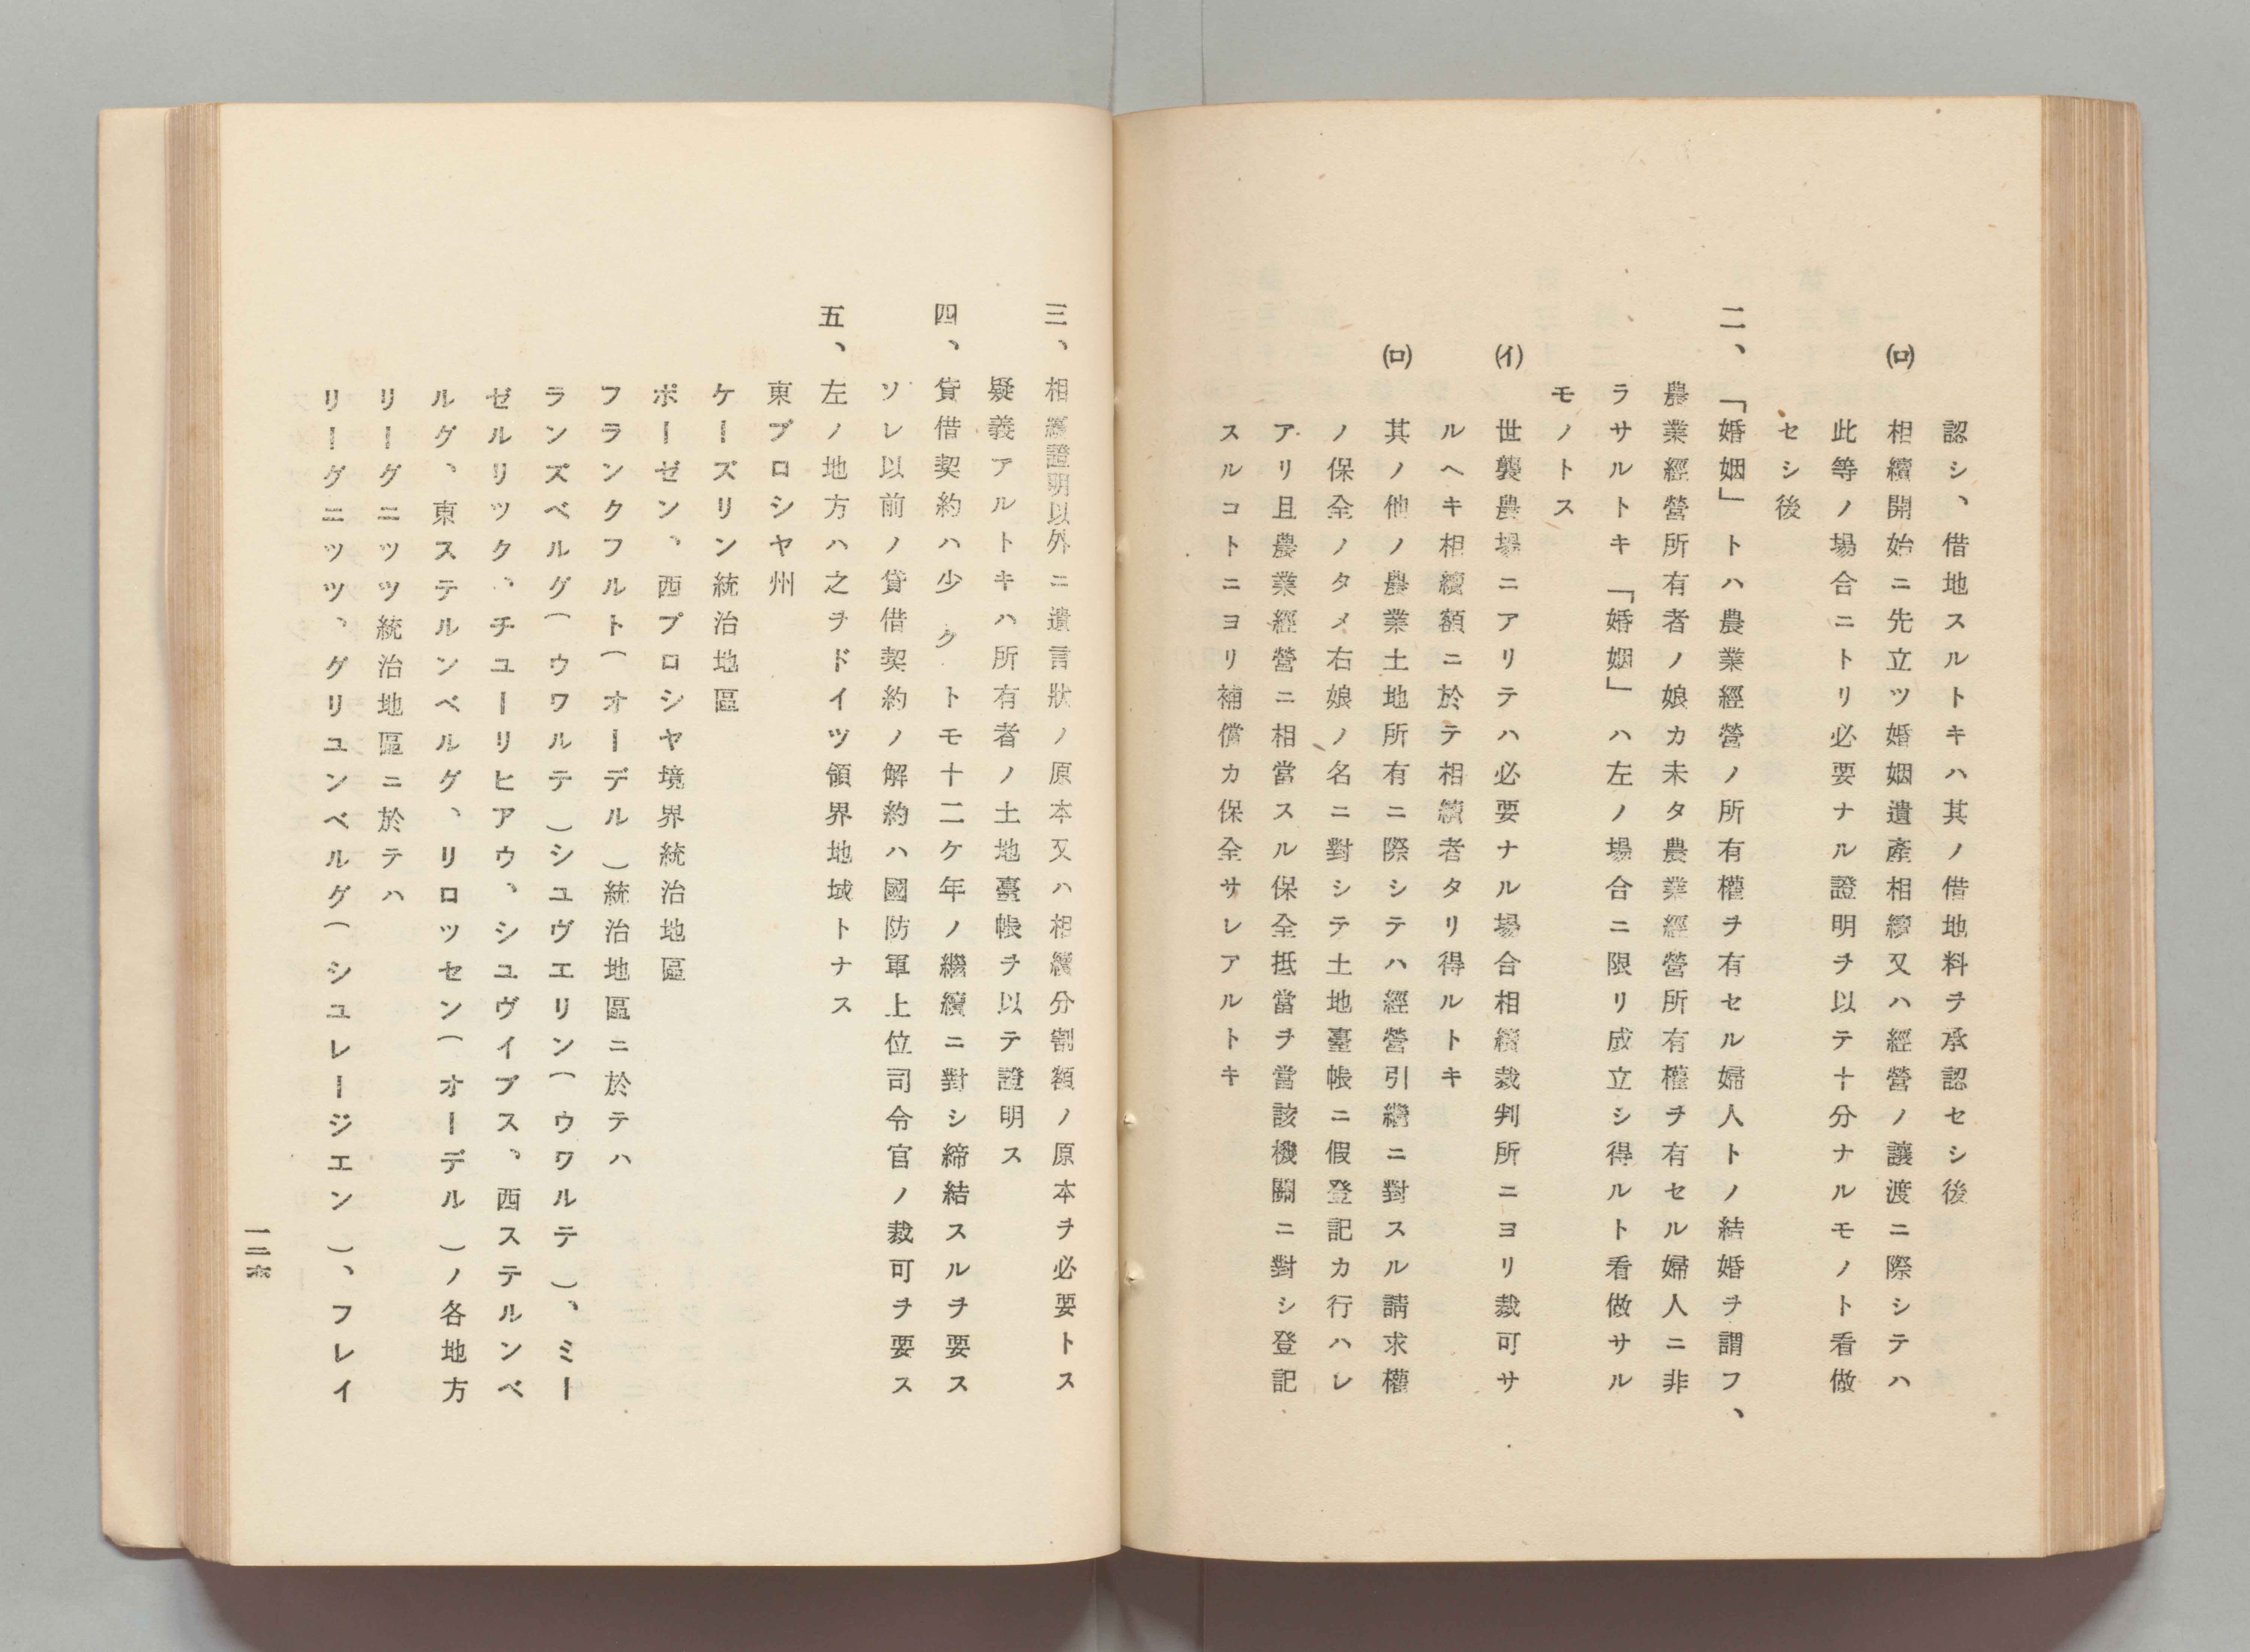 認シ、借地スルトキハ其ノ借地料ヲ承認セシ後
㈺ 相續開始ニ先立ツ婚姻遺產相續又ハ經營ノ讓渡ニ際シテハ
此等ノ場合ニトリ必要ナル證明ヲ以テ十分ナルモノト看做
セシ後
二、「婚姻」トハ農業經營ノ所有權ヲ有セル婦人トノ結婚ヲ謂フ、
農業經營所有者ノ娘カ未タ農業經營所有權ヲ有セル婦人ニ非
ラサルトキ「婚姻」ハ左ノ場合ニ限リ成立シ得ルト看做サル
モノトス
(イ) 世襲農場ニアリテハ必要ナル場合相續裁判所ニヨリ裁可サ
ルヘキ相續額ニ於テ相續者タリ得ルトキ
(ロ) 其ノ他ノ農業土地所有ニ際シテハ經營引繼ニ對スル請求權
ノ保全ノタメ右娘ノ名ニ對シテ土地臺帳ニ假登記カ行ハレ
アリ且農業經營ニ相當スル保全抵當ヲ當該機關ニ對シ登記
スルコトニヨリ補償カ保全サレアルトキ
三、相續證明以外ニ遺言狀ノ原本又ハ相續分割額ノ原本ヲ必要トス
疑義アルトキハ所有者ノ土地臺帳ヲ以テ證明ス
四、貸借契約ハ少クトモ十二ケ年ノ繼續ニ對シ締結スルヲ要ス
ソレ以前ノ貸借契約ノ解約ハ國防軍上位司令官ノ裁可ヲ要ス
五、左ノ地方ハ之ヲドイツ領界地域トナス
東プロシヤ州
ケーズリン統治地區
ポーゼン、西プロシヤ境界統治地區
フランクフルト(オーデル)統治地區ニ於テハ
ランズベルグ(ウワルテ)シユヴエリン(ウワルテ)、ミー
ゼルリツク、チユーリヒアウ、シユヴイブス、西ステルンベ
ルグ、東ステルンベルグ、リロツセン(オーデル)ノ各地方
リーグニツツ統治地區ニ於テハ
リーグニツツ、グリユンベルグ(シユレージエン)、フレイ
一二六